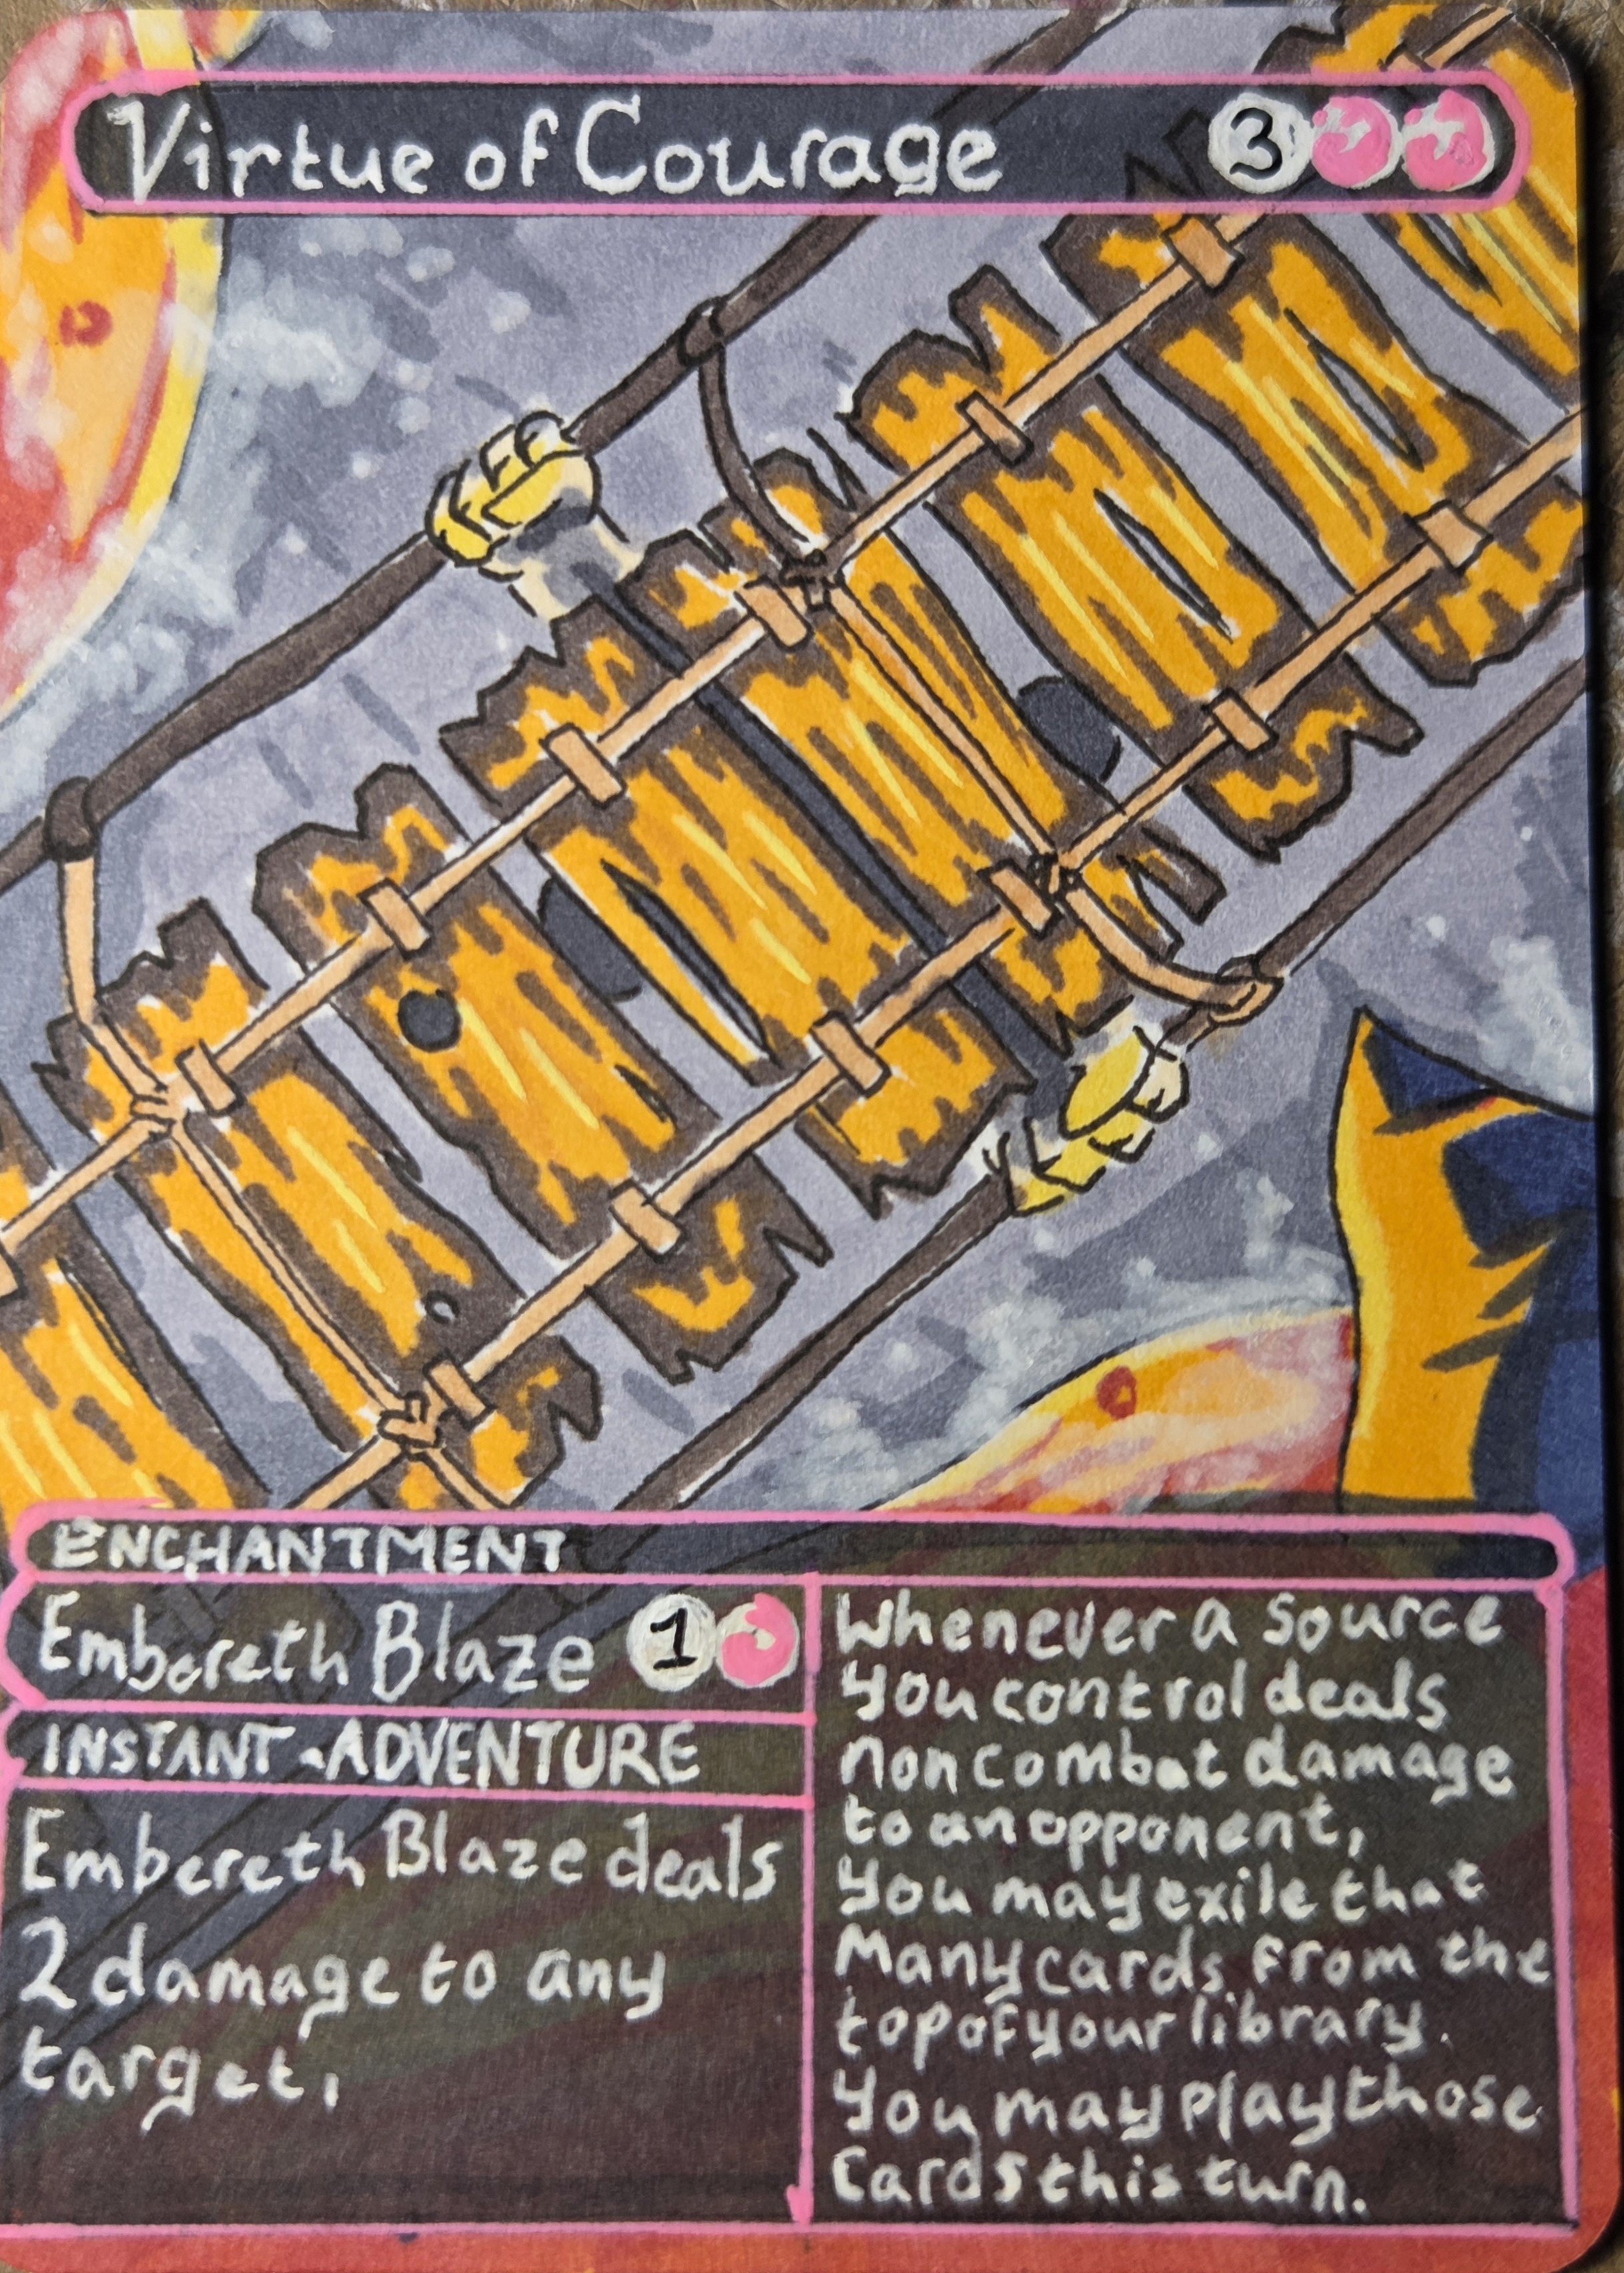 Virtue of Courage 3
ENCHANTMENT
Embereth Blaze 1
INSTANT-ADVENTURE
Embereth Blaze deals
2 damage to any
target.
Whenever a source
you control deals
noncombat damage
to an opponent,
you may exile that
Many cards from the
top of your library.
You may play those
Cards this turn.